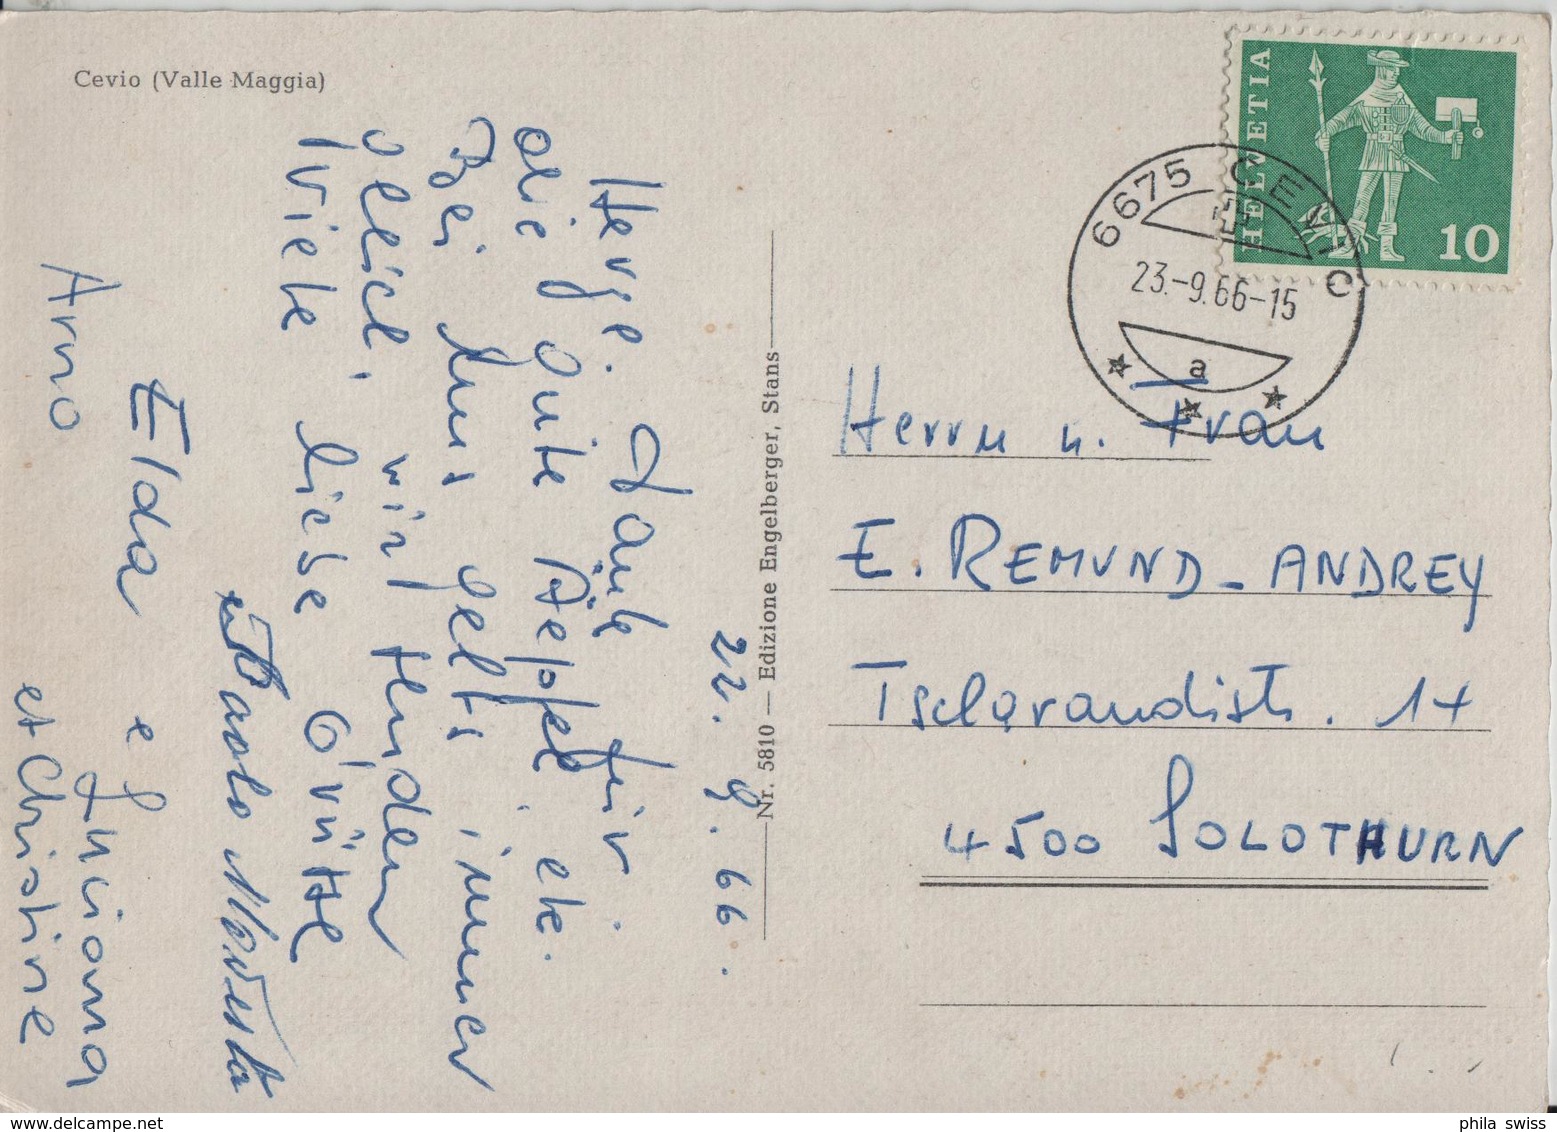 Cevio (Valle Maggia)
HELVETIA
10
6675 CEVIO
23.-9.66-15
a
22. 9. 66.
Herzl. Dank für
die gute Aepfel etc.
Bei uns geht's immer
wir
Viele liebe Grüsse
Paolo Modesta
Elda e Luciana
Arno et Christine
Nr. 5810 — Edizione Engelberger, Stans
Herrn u. Frau
E. REMUND-ANDREY
4500 SOLOTHURN
phila swiss